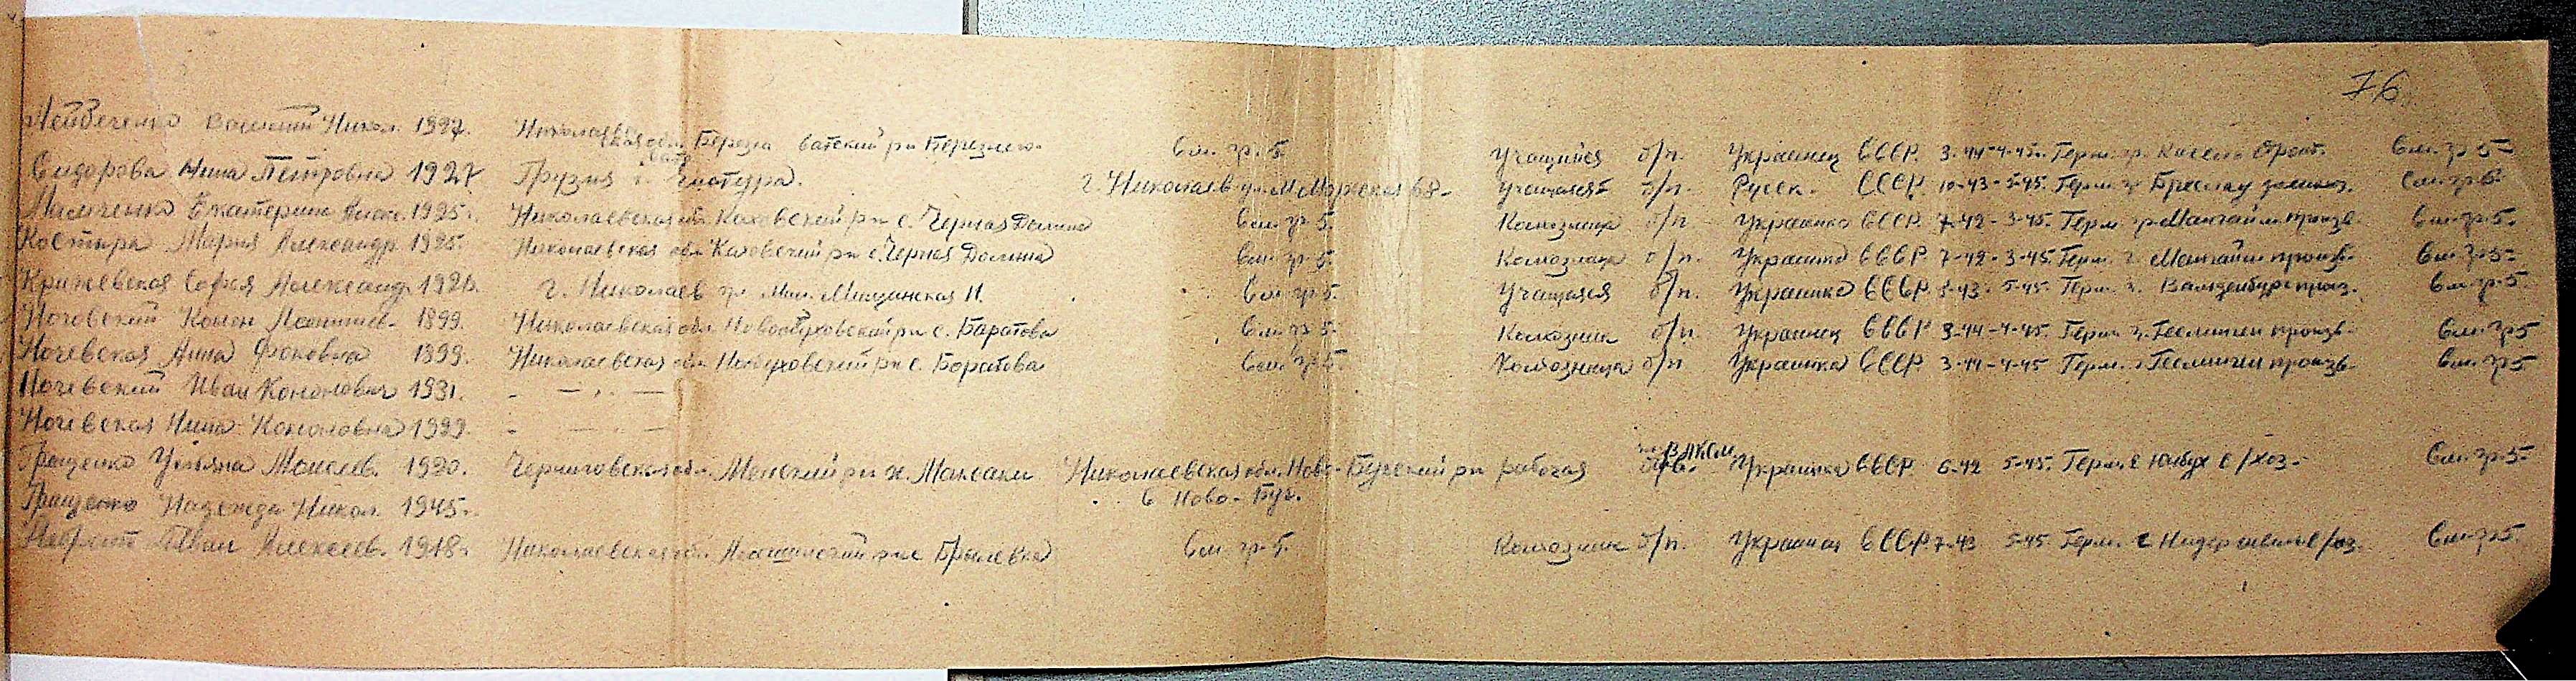 76
Василий Никол. 1927. Николаевская обл. Березна ватский р-н Березнего- ватс См. гр. 5. Учащийся б/п. Украинец СССР. 3-44-4-45. Герм. гр. См. гр 5-
Сидорова Анна Петровна 1927 Грузия г. г. Николаев ул. М. Морская 68- Учащаяся б/п. Русск. СССР 10-43-5-45. Герм. г. Бреслау См. гр. 5
Екатерина 1925. Николаевская обл. Каховский р-н с. Черная Долина См. гр 5. Колхозница б/п Украинка СССР. 7-42-3-45. Герм. г. Мангайм произв. См. гр. 5.
Костыра Мария Александр. 1925. Николаевская обл. Каховский р-н с. Черная Долина См. гр. 5. Колхозница б/п. Украинка СССР 7-42-3-45. Герм. г. Мангайм произв. См. гр. 5-
Крижевская Софья Александ. 1926. г. Николаев ул. Мал. Мищинская 11. См. гр 5. Учащаяся б/п. Украинка СССР. 5-43- 5-45 Герм. г. Вальденбург произ. См. гр. 5
Ночевский Конон 1899. Николаевская обл. р-н с. Баратова См. гр 5- Колхозник б/п Украинец СССР 3-44-4-45. Герм. г. Геслинген произв- См. гр 5
Ночевская Анна Фоковна 1899. Николаевская обл. р-н с. Боратова См. гр. 5. Колхозница б/п Украинка СССР 3-44-4-45 Герм. г. Геслинген произв- См. гр 5
Ночевский Иван Кононович 1931. - — „ —
Ночевская Нина Кононовна 1929. - — „ —
Грищенко Ульяна Моисеев. 1920. Черниговская обл. Менский р-н х. Максаки Николаевская обл. Ново-Бугский р-н рабочая ВЛКСМ Украинка СССР 6-42 5-45. Герм. с/хоз- См. гр. 5-
с Ново-Буг.
Грищенко Надежда Никол. 1945.
Иван Алексеев. 1918. Николаевская обл. р-н с. Брилевка См. гр. 5. Колхозник б/п. Украинец СССР. 7-43 5-45. Герм. с/хоз. См. гр 5.